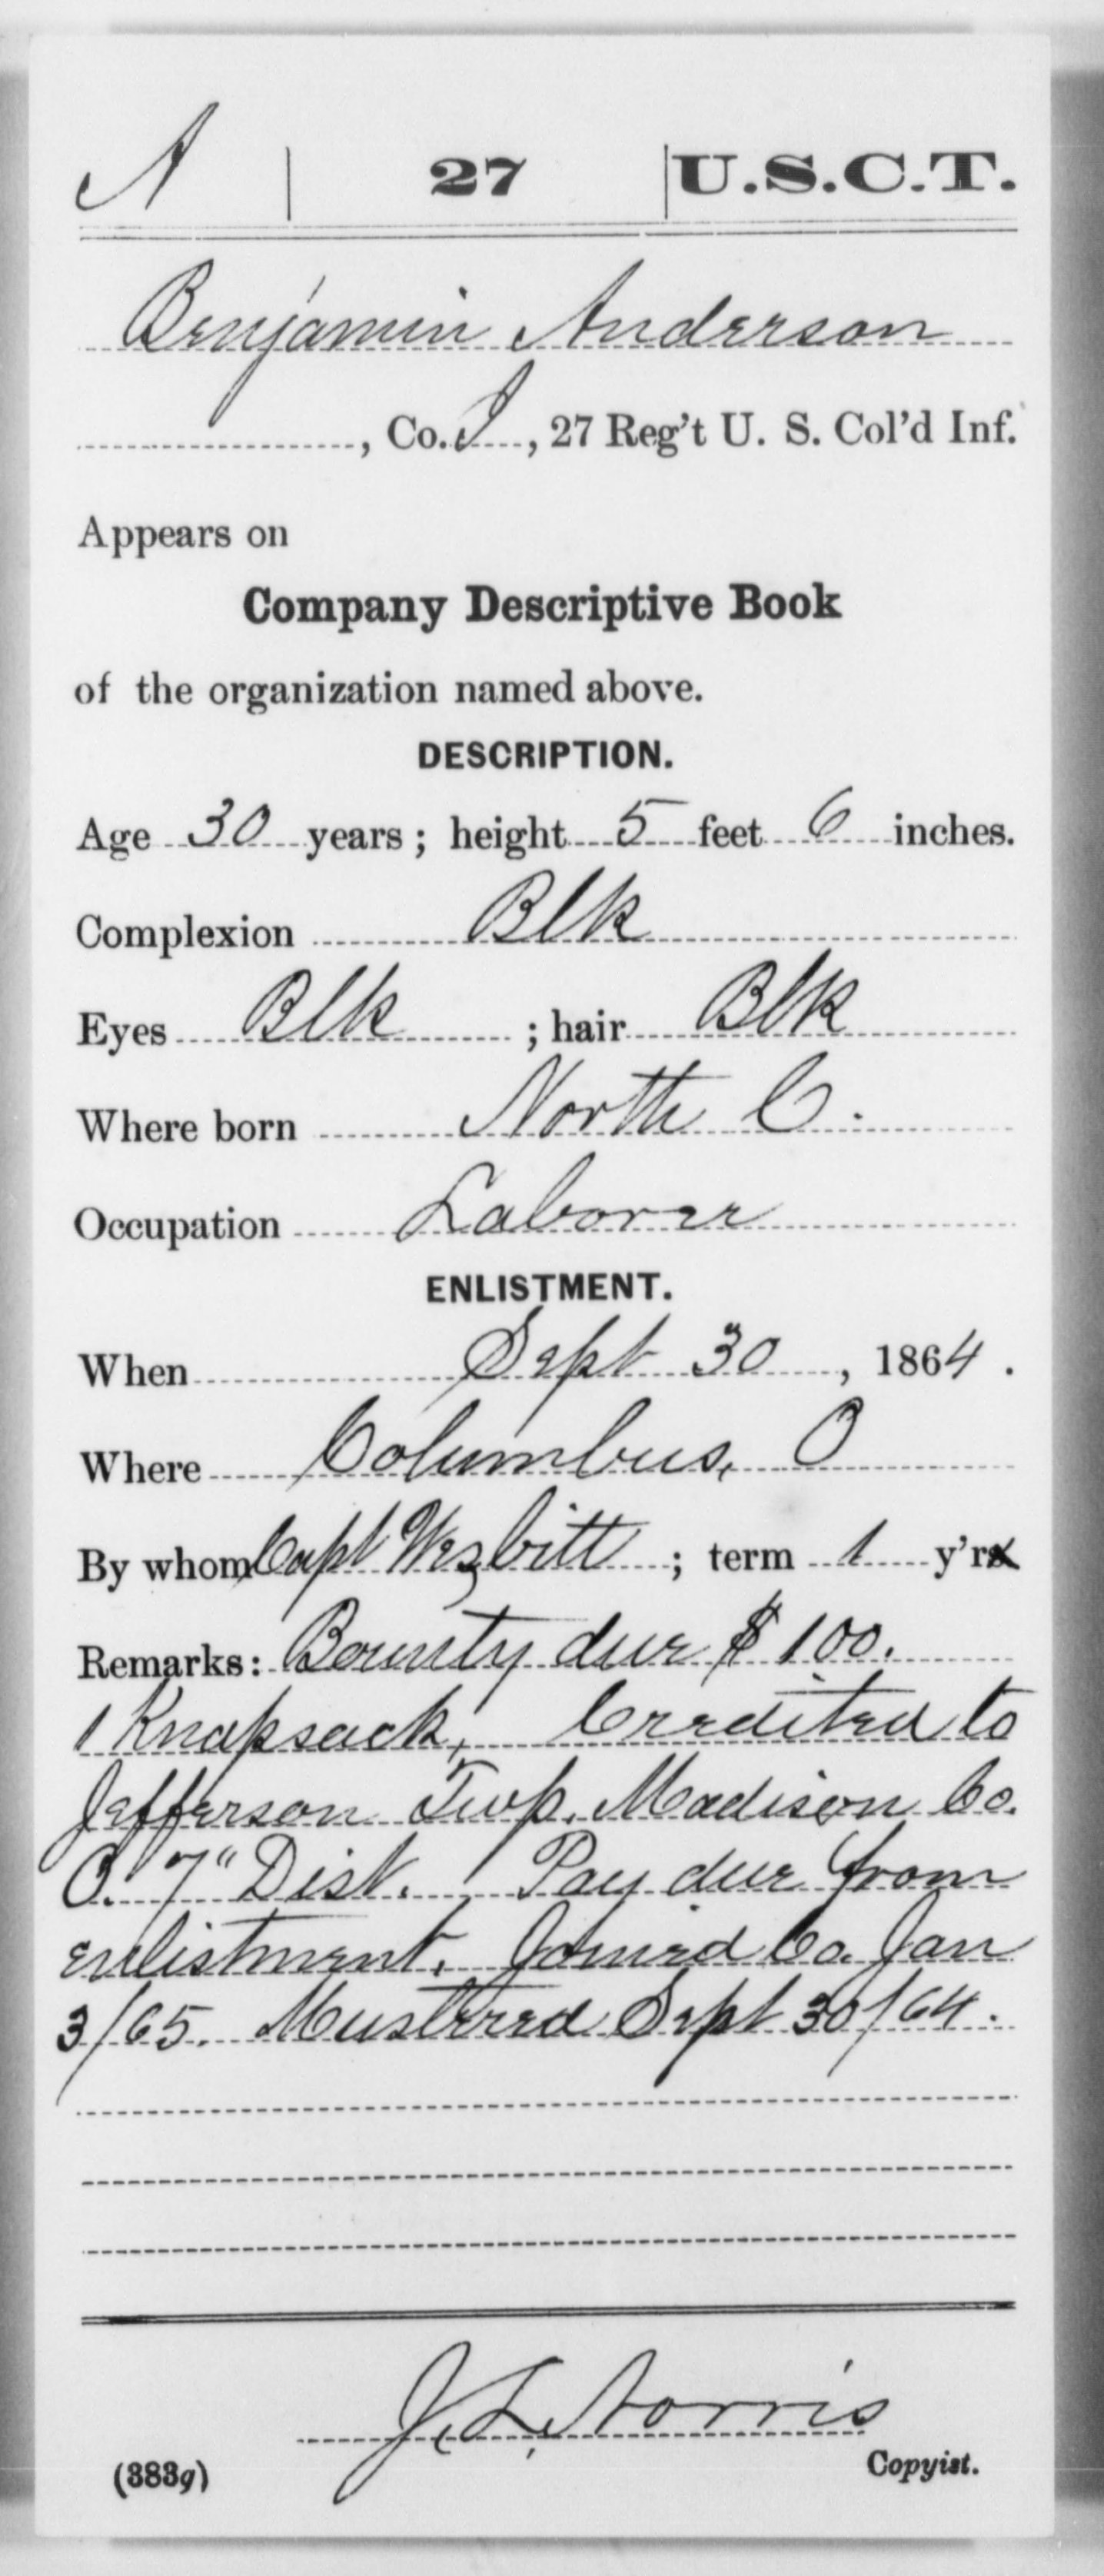 A 27 U.S.C.T.
Benjamin Anderson
, Co. I, 27 Reg't U. S. Col'd Inf.
Appears on
Company Descriptive Book
of the organization named above.
DESCRIPTION.
Age 30 years; height 5 feet 6 inches.
Complexion Blk
Eyes Blk; hair Blk
Where born North C.
Occupation Laborer
ENLISTMENT.
When Sept 30, 1864.
Where Columbus, O
By whom Capt; term 1 y'rs
Remarks: Bounty due $100.
1 Knapsack, Credited to
Jefferson Twp. Madison Co.
O. 7" Dist. Pay due from
enlistment. Joined Co. Jan
3/65. Mustered Sept 30/64.
J. L. Norris
(383g) Copyist.